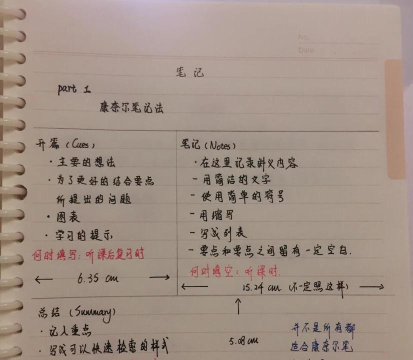 笔记
part 1
康奈尔笔记法
开篇 (Cues)
· 主要的想法
· 为了更好的结合要点
所提出的问题
· 图表
· 学习的提示
何时填写：听课后复习时
6.35 cm
笔记 (Notes)
· 在这里记录讲义内容
- 用简洁的文字
- 使用简单的符号
- 用缩写
- 写成列表
- 要点和要点之间留有一定空白.
何时填空：听课时.
15.24 cm (不一定照这样)
总结 (Summary)
· 记入重点
· 写成可以快速检索的样式
5.08 cm
并不是所有都
适合康奈尔笔